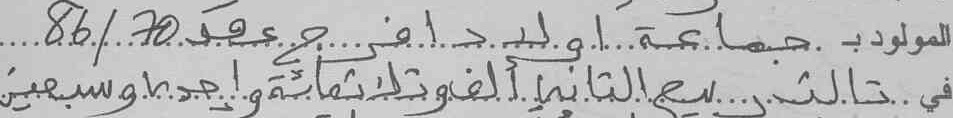 المولود بـ جماعة اوليد دا فرج عقد 86/70
في ثالث ربيع الثاني ألف وثلاثمائة واحد وسبعين